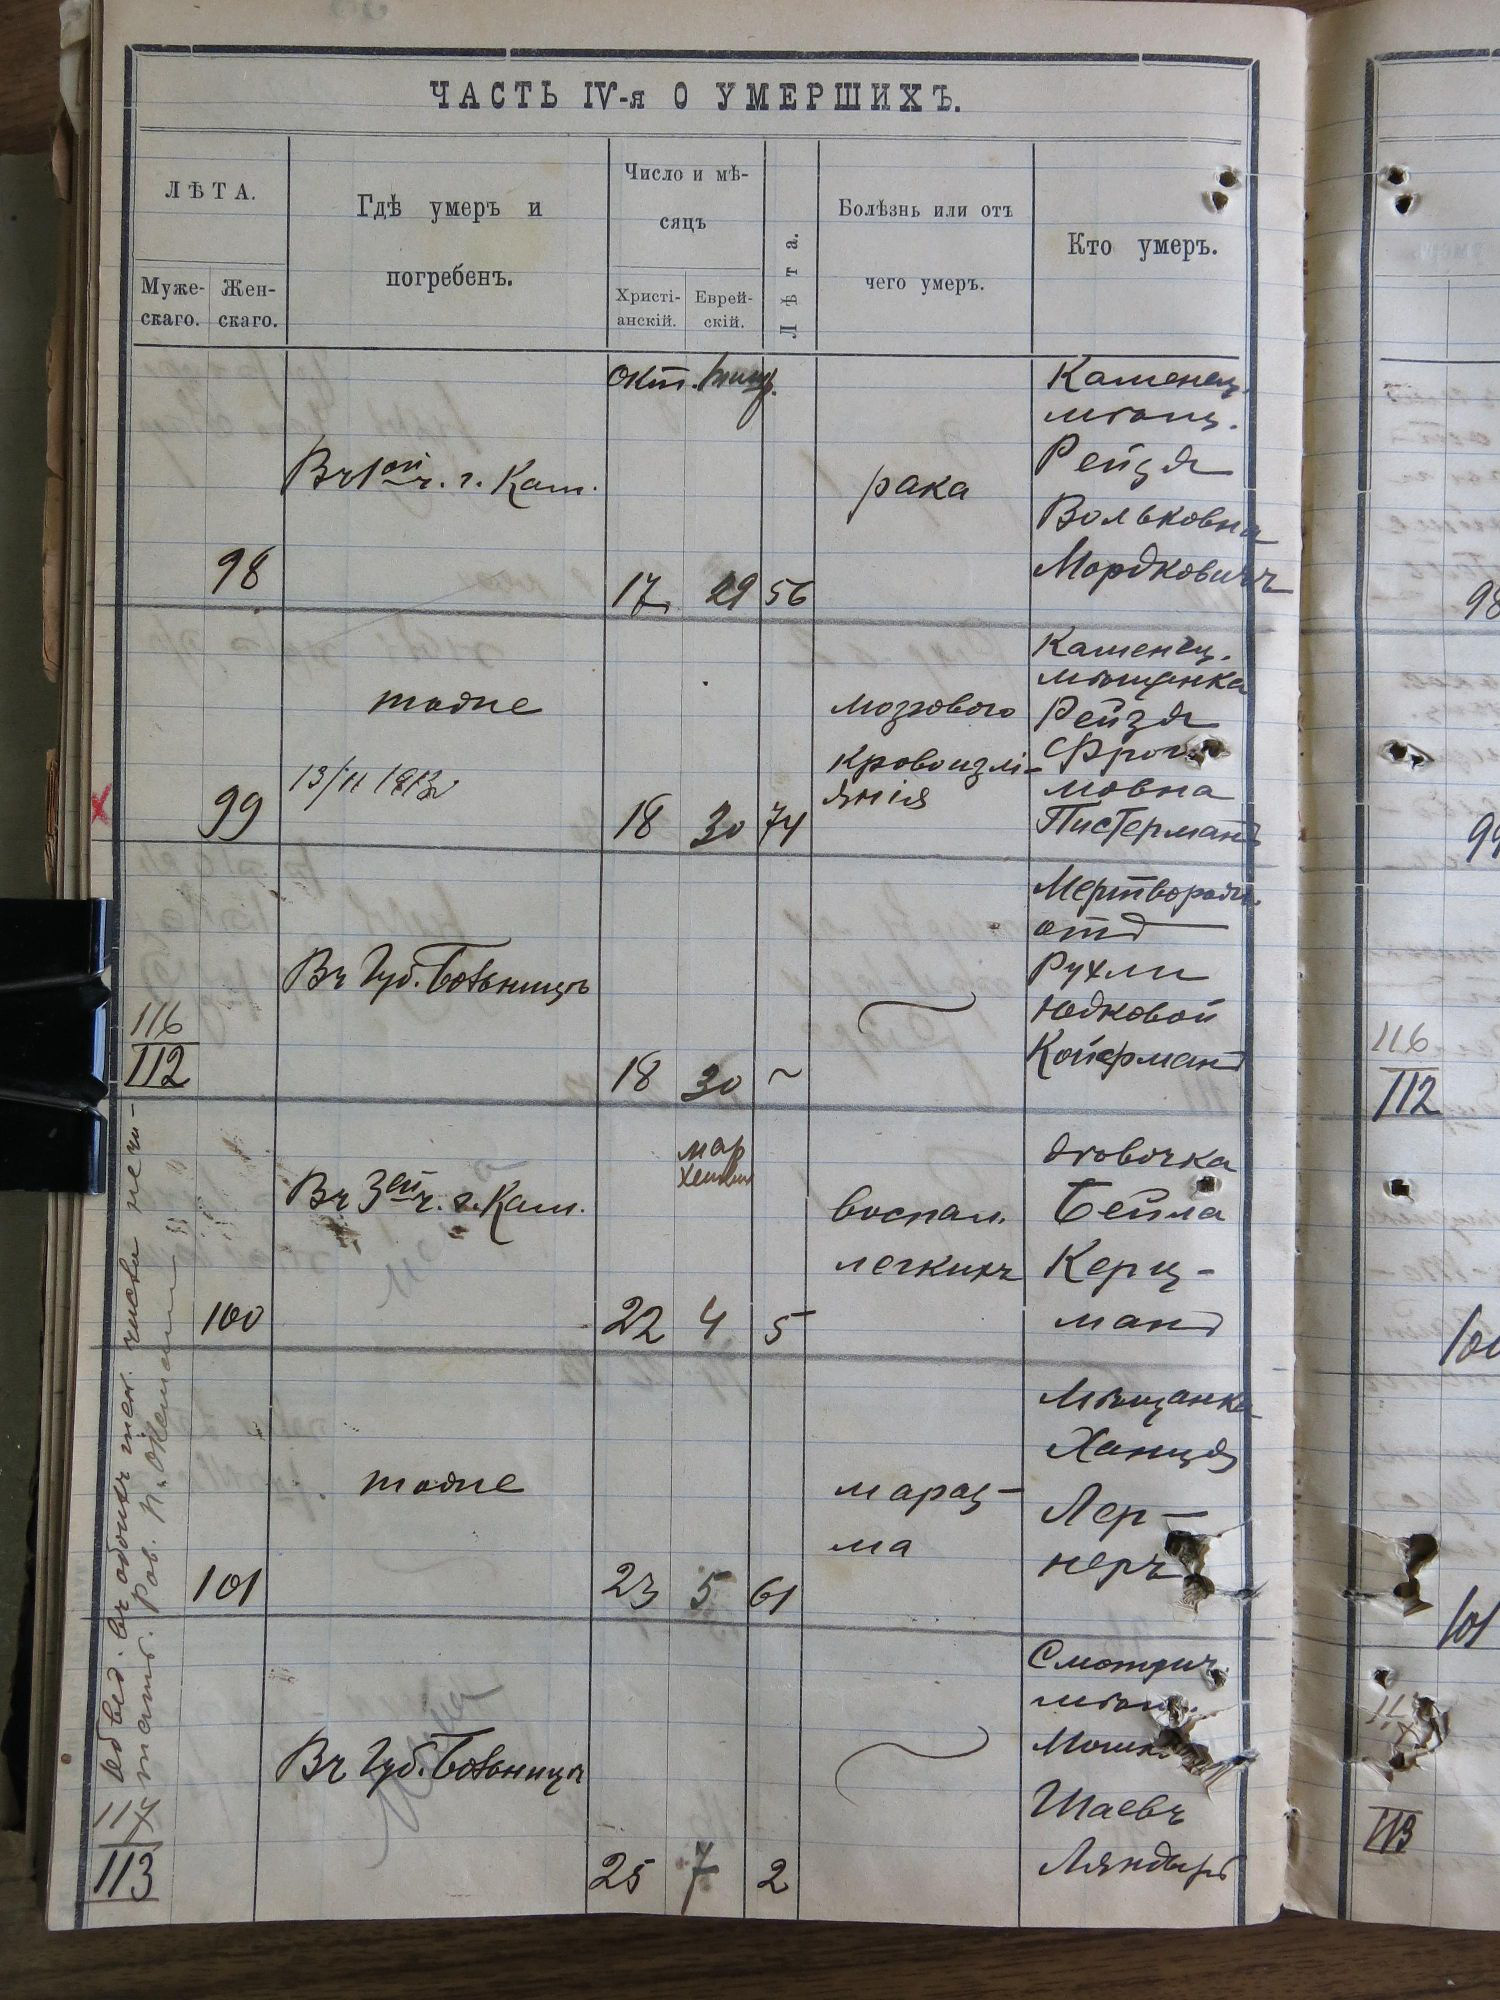 ЧАСТЬ IV-я О УМЕРШИХЪ.
ЛѢТА.
Муже-
скаго.
Жен-
скаго.
Гдѣ умеръ и
погребенъ.
Число и мѣ-
сяцъ
Христі-
анскій.
Еврей-
скій.
Лѣта.
Болѣзнь или отъ
чего умеръ.
Кто умеръ.
98
Въ 1ой ч. г. Кам.
окт.
17
29
56
рака
Каменец.
мѣщ.
Рейзя
Вольковна
Мордковичъ
99
тоже
13/II 1913
18
30
74
мозгового
кровоизлі-
янія
Каменец.
мѣщанка
Рейзя
Фрои-
мовна
Пистерманъ
116
112
Въ Губ. Больницѣ
18
30
~
Мертворожд.
отъ
Рухли
Юдковой
Койфманъ
100
Въ 3ей ч. г. Кам.
22
мар
хешван
4
5
воспал.
легкихъ
дѣвочка
Бейла
Керц-
манъ
101
тоже
23
5
61
мараз-
ма
Мѣщанка
Ханця
Лер-
неръ
113
Въ Губ. Больницѣ
25
7
2
Смотрич.
мѣщ.
Мошко
Шаевъ
Ляндыръ
98
99
116
112
100
101
113